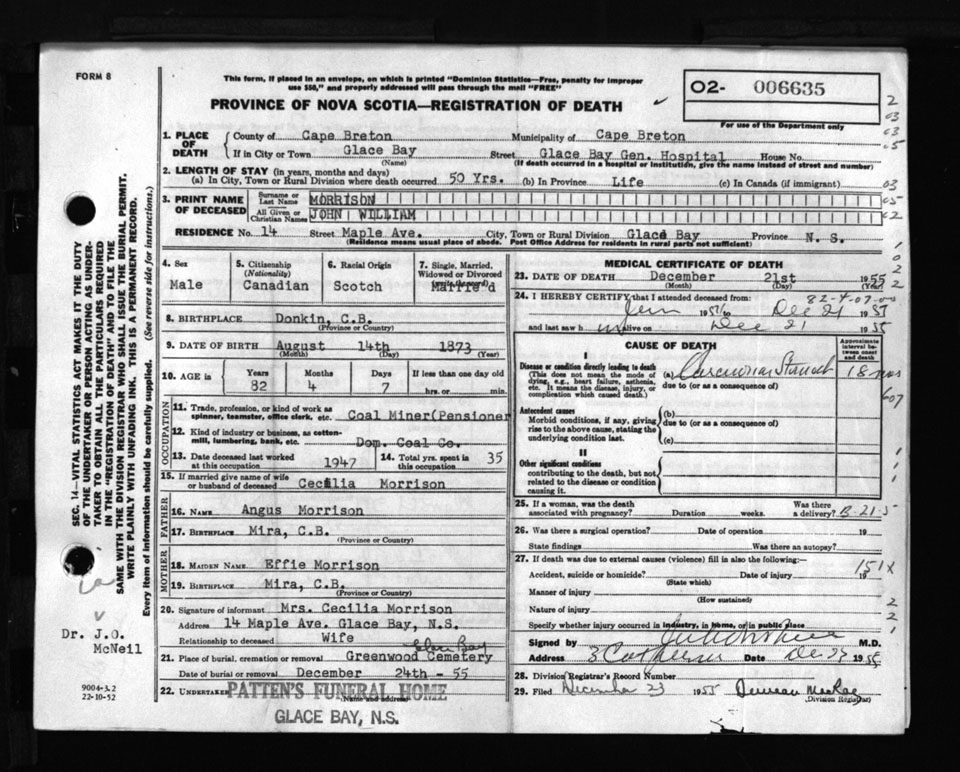 FORM 8
This form, if placed in an envelope, on which is printed "Dominion Statistics—Free, penalty for improper
use $50," and properly addressed will pass through the mail "FREE"
PROVINCE OF NOVA SCOTIA—REGISTRATION OF DEATH
O2- 006635
For use of the Department only
1. PLACE OF DEATH
County of Cape Breton Municipality of Cape Breton
If in City or Town Glace Bay Street Glace Bay Gen. Hospital House No.
(Name) (If death occurred in a hospital or institution, give the name instead of street and number)
2. LENGTH OF STAY (in years, months and days)
(a) In City, Town or Rural Division where death occurred 50 Yrs. (b) In Province Life (c) In Canada (if immigrant)
3. PRINT NAME OF DECEASED
Surname or Last Name MORRISON
All Given or Christian Names JOHN WILLIAM
RESIDENCE No. 14 Street Maple Ave. City, Town or Rural Division Glace Bay Province N. S.
(Residence means usual place of abode. Post Office Address for residents in rural parts not sufficient)
4. Sex
Male
5. Citizenship (Nationality)
Canadian
6. Racial Origin
Scotch
7. Single, Married, Widowed or Divorced
Marrie d
8. BIRTHPLACE Donkin, C.B.
(Province or Country)
9. DATE OF BIRTH August 14th 1873
(Month) (Day) (Year)
10. AGE in Years Months Days If less than one day old
82 4 7 hrs. or min.
OCCUPATION
11. Trade, profession, or kind of work as
spinner, teamster, office clerk. etc. Coal Miner(Pensioner
12. Kind of industry or business, as cotton-
mill, lumbering, bank, etc. Dom. Coal Co.
13. Date deceased last worked at this occupation 1947
14. Total yrs. spent in this occupation 35
15. If married give name of wife
or husband of deceased Cecilia Morrison
FATHER
16. NAME Angus Morrison
17. BIRTHPLACE Mira, C.B.
(Province or Country)
MOTHER
18. MAIDEN NAME Effie Morrison
19. BIRTHPLACE Mira, C.B.
(Province or Country)
20. Signature of informant Mrs. Cecilia Morrison
Address 14 Maple Ave. Glace Bay, N.S.
Relationship to deceased Wife
Glace Bay
21. Place of burial, cremation or removal Greenwood Cemetery
Date of burial or removal December 24th - 55
22. UNDERTAKER PATTEN'S FUNERAL HOME
(Name and address)
GLACE BAY, N.S.
MEDICAL CERTIFICATE OF DEATH
23. DATE OF DEATH December 21st 1955
(Month) (Day) (Year)
82-4-07-00
24. I HEREBY CERTIFY that I attended deceased from:
Dec 21 1955
and last saw h im alive on Dec 21 1955
CAUSE OF DEATH
Approximate interval between onset and death
I
Disease or condition directly leading to death
(This does not mean the mode of
dying, e.g., heart failure, asthenia,
etc. It means the disease, injury, or
complication which caused death.)
(a) Carcinoma Stomach 18 mos
due to (or as a consequence of)
Antecedent causes
Morbid conditions, if any, giving
rise to the above cause, stating the
underlying condition last.
(b)
due to (or as a consequence of)
(c)
II
Other significant conditions
contributing to the death, but not
related to the disease or condition
causing it.
25. If a woman, was the death
associated with pregnancy? Duration weeks. Was there a delivery?
26. Was there a surgical operation? Date of operation 19
State findings Was there an autopsy?
27. If death was due to external causes (violence) fill in also the following:—
151X
Accident, suicide or homicide? Date of injury 19
(State which)
Manner of injury
(How sustained)
Nature of injury
Specify whether injury occurred in industry, in home, or in public place
Signed by M.D.
Address Date Dec 23 1955
28. Division Registrar's Record Number
29. Filed December 23 1955 Duncan MacRae
(Division Registrar)
SEC. 14—VITAL STATISTICS ACT MAKES IT THE DUTY
OF THE UNDERTAKER OR PERSON ACTING AS UNDER-
TAKER TO OBTAIN ALL THE PARTICULARS REQUIRED
IN THE "REGISTRATION OF DEATH" AND TO FILE THE
SAME WITH THE DIVISION REGISTRAR WHO SHALL ISSUE THE BURIAL PERMIT.
WRITE PLAINLY WITH UNFADING INK. THIS IS A PERMANENT RECORD.
Every item of information should be carefully supplied. (See reverse side for instructions.)
Dr. J.O.
McNeil
9004-3.2
22-10-52